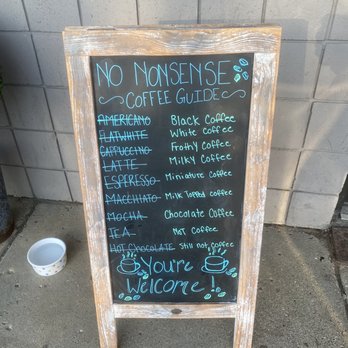 NO NONSENSE
COFFEE GUIDE
AMERICANO Black Coffee
FLATWHITE White Coffee
CAPPUCCINO Frothy Coffee
LATTE Milky Coffee
ESPERESSO Miniature Coffee
MACCHIATO Milk Topped Coffee
MOCHA Chocolate Coffee
TEA Not Coffee
HOT CHOCOLATE Still not coffee
You're
Welcome!